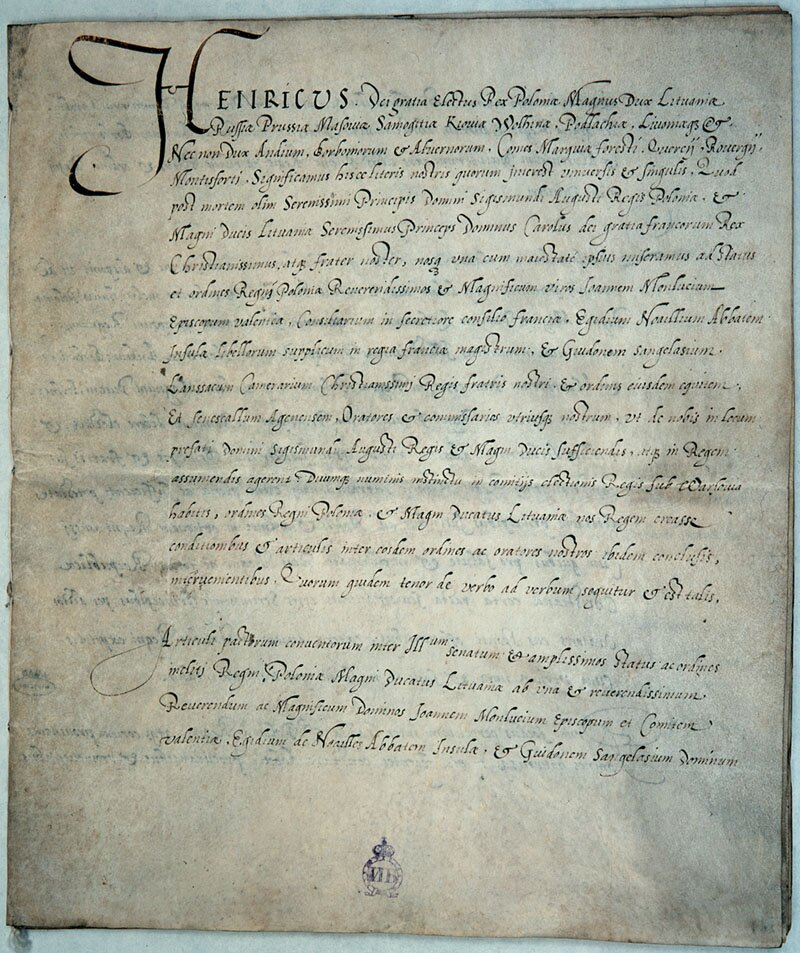 HENRICUS. Dei gratia Electus Rex Poloniæ Magnus Dux Lituaniæ
Russiæ Prussiæ Masoviæ Samogitiæ Kioviæ Wolhinæ, Podlachiæ, Livoniæqȝ &.
Nec non Dux Andium, Borboniorum & Alvernorum, Comes Marquiæ foresti, Quercij, Rovergij
Montisforti, Significamus hisce literis nostris quorum jnterest vniversis & singulis, Quod
post mortem olim Serenissimi Principis Domini Sigismundi Augusti Regis Poloniæ, &
Magni Ducis Lituaniæ Serenissimus Princeps Dominus Carolus dei gratia francorum Rex
Christianissimus, atqȝ frater noster, nosqȝ vna cum maiestate ipsius miseramus ad Status
et ordines Regni Poloniæ Reverendissimos & Magnificum viros Ioannem Monlucium
Episcopum valentiæ, Consiliarium in secretiore consilio franciæ, Egidium Noaillium Abbatem
Insulæ libellorum supplicum in regia franciæ magistrum, & Guidonem Sangelasium
Lanssacum Camerarium Christianissimj Regis fratris nostri & ordinis eiusdem equitem,
Et Senescallum Agenensem, Oratores & commissarios vtriusqȝ nostrum, vt de nobis in locum
prefati Domini Sigismundi Augusti Regis & Magni Ducis sufficiendis, atqȝ in Regem
assumendis agerent Divinoqȝ numinis instinctu in comitijs electionis Regis sub Warsovia
habitis, ordines Regni Poloniæ, & Magni Ducatus Lituaniæ nos Regem creasse
conditionibus & articulis inter eosdem ordines ac oratores nostros ibidem conclusis,
intervenientibus. Quorum quidem tenor de verbo ad verbum sequitur & est talis,
Articuli pactorum conventorum inter Illum senatum & amplissimos status ac ordines
inclitj Regni Poloniæ Magni Ducatus Lituaniæ ab vna & reverendissimum
Reverendum ac Magnificum Dominos Ioannem Monlucium Episcopum et Comitem
valentiæ, Egidium de Noailles Abbatem Insulæ, & Guidonem Sangelasium Dominum